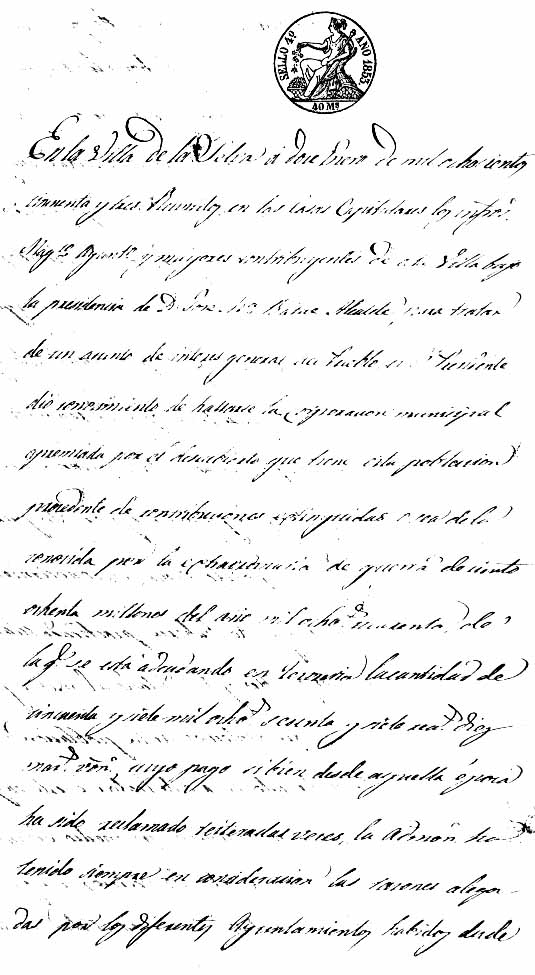 SELLO 4º AÑO 1853.
40 Ms
En la Villa de la Selva á doce Enero de mil ochocientos
cincuenta y tres. Reunidos en las casas Capitulares los infros.
Magco. Ayunto. y mayores contribuyentes de esta Villa bajo
la presidencia de D. José Alcalde, para tratar
de un asunto de interes general del Pueblo el Sr. Presidente
dio conocimiento de hallarse la corporacion municipal
apremiada por el descubierto que tiene esta poblacion
procedente de contribuciones estinguidas o sea de la
conocida por la extraordinaria de guerra de ciento
ochenta millones del año mil ochos. cuarenta, de
la q. se está adeudando en Tesoreria la cantidad de
cincuenta y siete mil ochos. sesenta y siete reas. diez
mars. von., cuyo pago si bien desde aquella época
ha sido reclamado reiteradas veces, la Admon. ha
tenido siempre en consideracion las razones alega-
das por los diferentes Ayuntamientos habidos desde